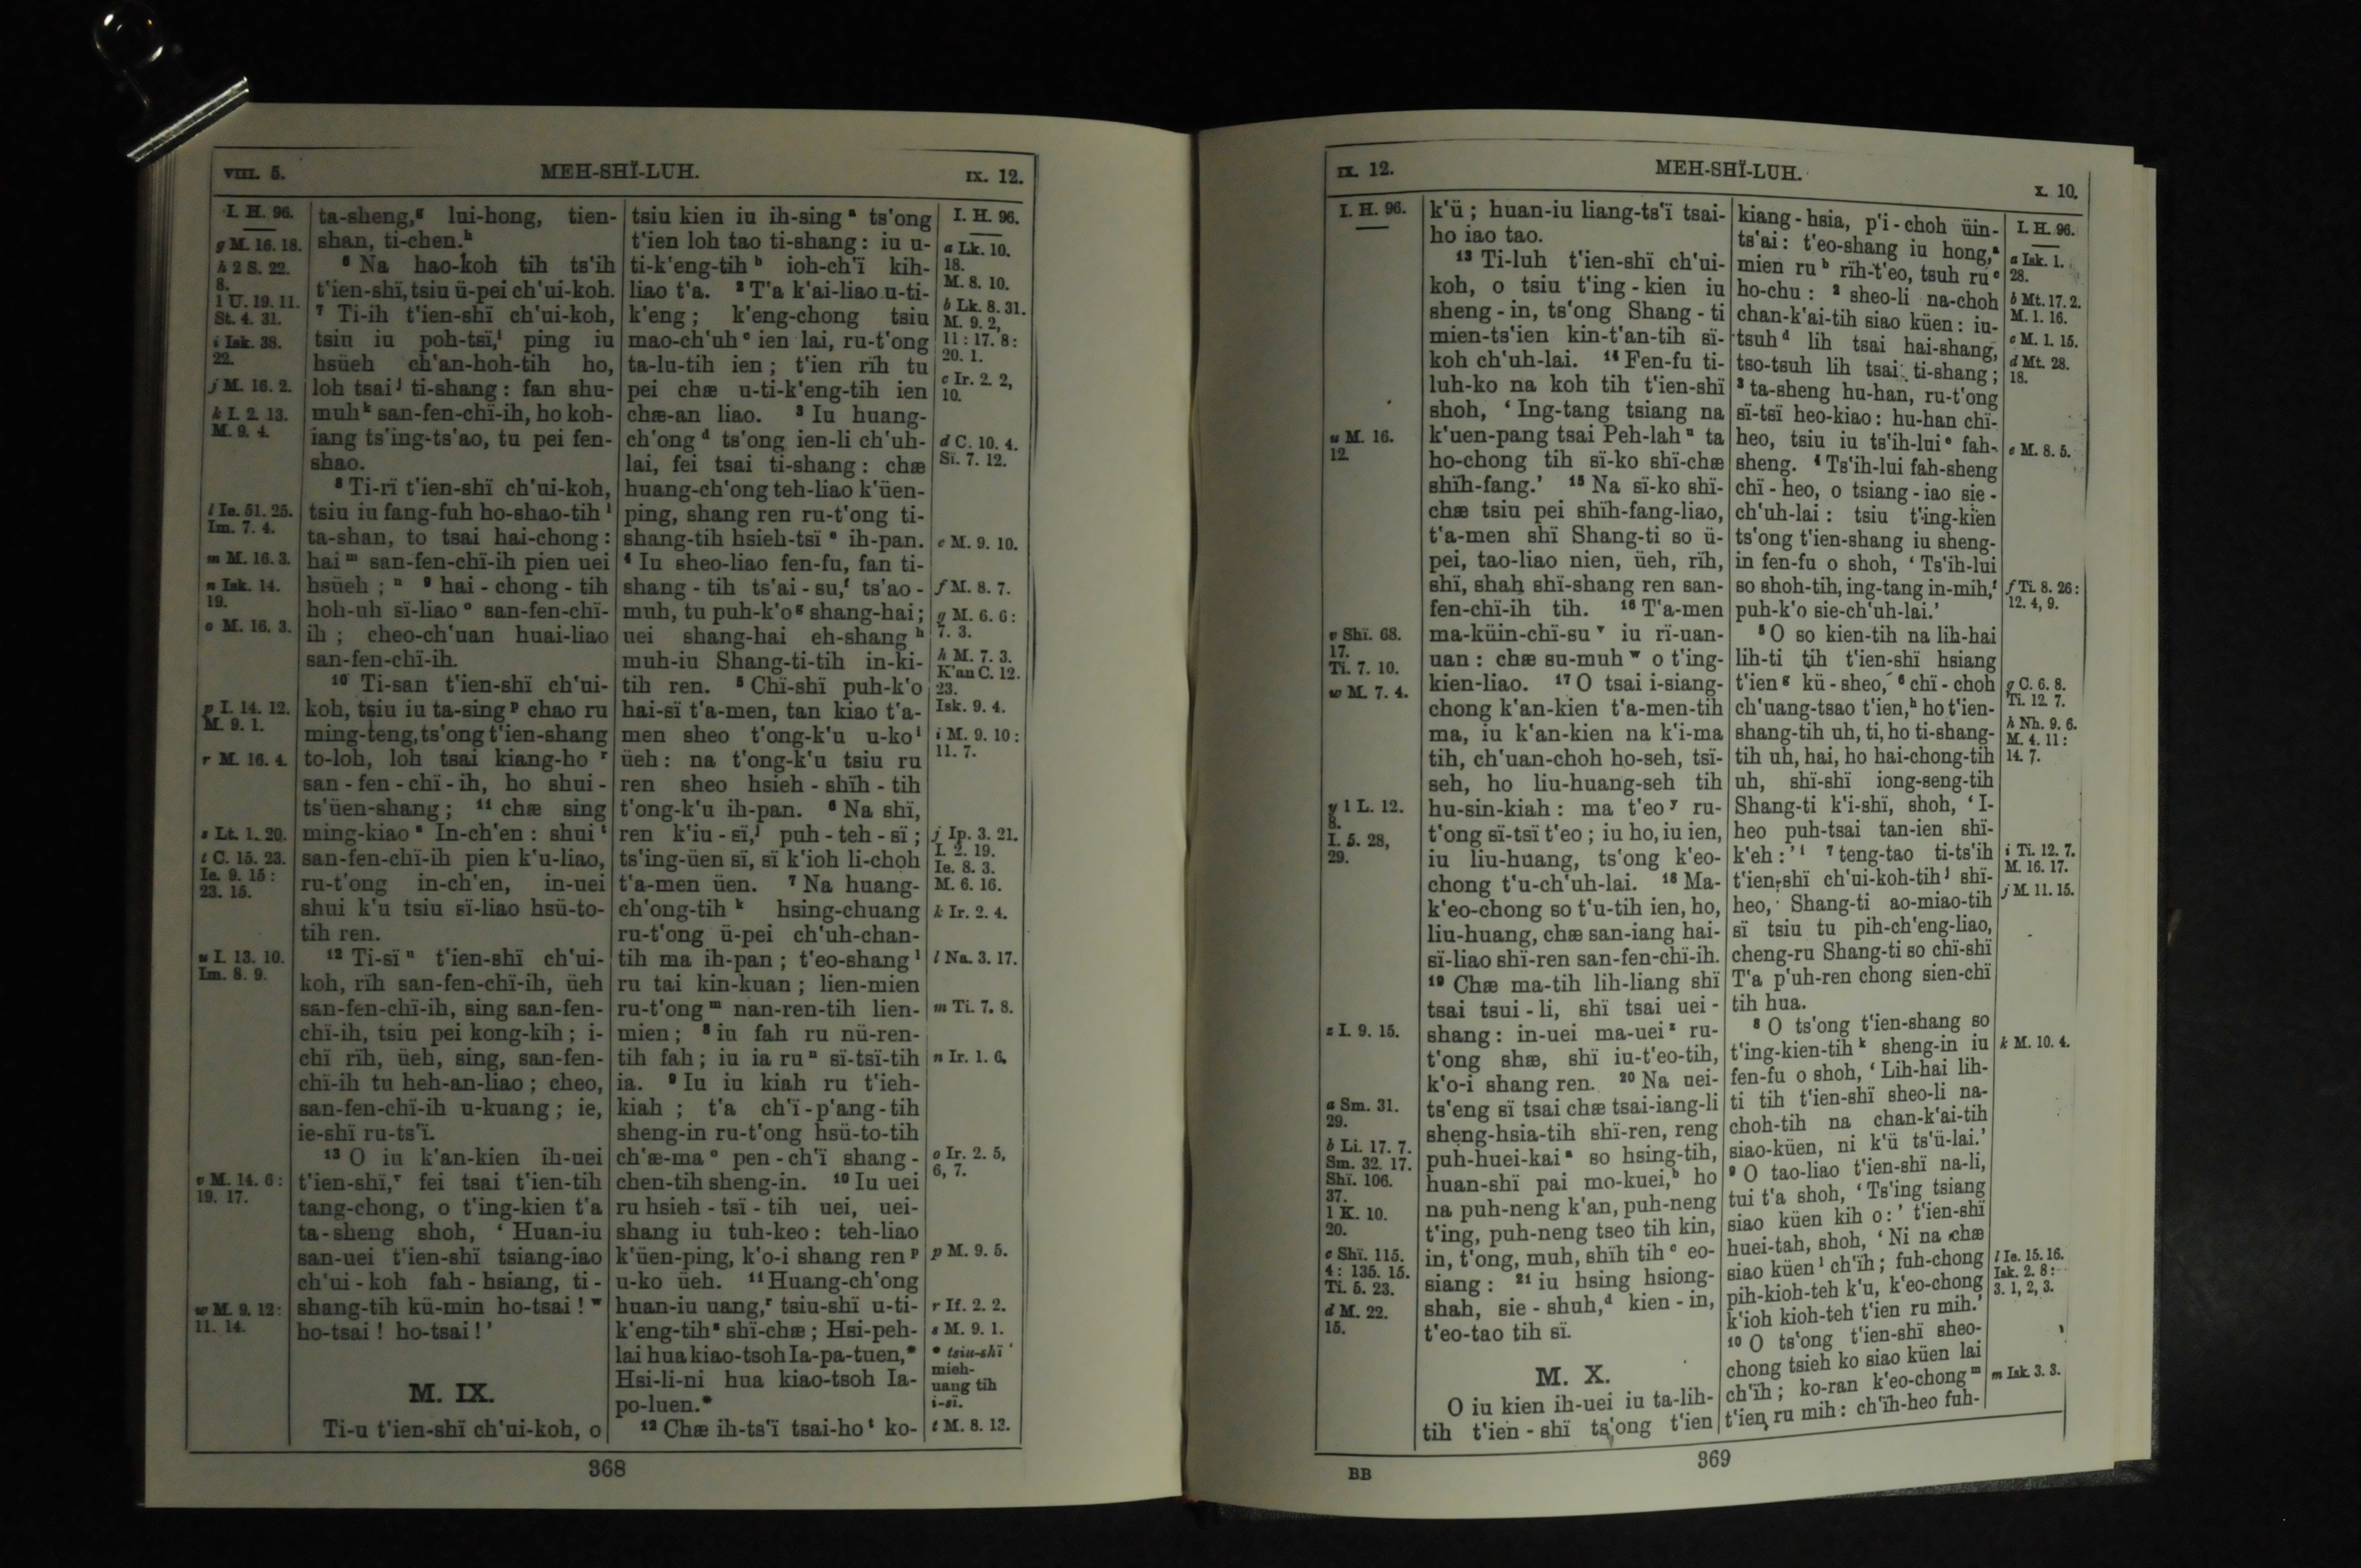 VIII. 5.
MEH-SHÏ-LUH.
IX. 12.
I. H. 96.
g M. 16. 18.
h 2 S. 22.
8.
1 U. 19. 11.
St. 4. 31.
i Isk. 38.
22.
j M. 16. 2.
k I. 2. 13.
M. 9. 4.
l Ie. 51. 25.
Im. 7. 4.
m M. 16. 3.
n Isk. 14.
19.
o M. 16. 3.
p I. 14. 12.
M. 9. 1.
r M. 16. 4.
s Lt. 1. 20.
t C. 15. 23.
Ie. 9. 15:
23. 15.
u I. 13. 10.
Im. 8. 9.
v M. 14. 6:
19. 17.
w M. 9. 12:
11. 14.
ta-sheng,g lui-hong, tien-
shan, ti-chen.h
6 Na hao-koh tih ts'ih
t'ien-shï, tsiu ü-pei ch'ui-koh.
7 Ti-ih t'ien-shï ch'ui-koh,
tsiu iu poh-tsï,i ping iu
hsüeh ch'an-hoh-tih ho,
loh tsai j ti-shang: fan shu-
muh k san-fen-chï-ih, ho koh-
iang ts'ing-ts'ao, tu pei fen-
shao.
8 Ti-rï t'ien-shï ch'ui-koh,
tsiu iu fang-fuh ho-shao-tih l
ta-shan, to tsai hai-chong:
hai m san-fen-chï-ih pien uei
hsüeh; n 9 hai-chong-tih
hoh-uh sï-liao o san-fen-chï-
ih; cheo-ch'uan huai-liao
san-fen-chï-ih.
10 Ti-san t'ien-shï ch'ui-
koh, tsiu iu ta-sing p chao ru
ming-teng, ts'ong t'ien-shang
to-loh, loh tsai kiang-ho r
san-fen-chï-ih, ho shui-
ts'üen-shang; 11 chæ sing
ming-kiao s In-ch'en: shui t
san-fen-chï-ih pien k'u-liao,
ru-t'ong in-ch'en, in-uei
shui k'u tsiu sï-liao hsü-to-
tih ren.
12 Ti-sï u t'ien-shï ch'ui-
koh, rïh san-fen-chï-ih, üeh
san-fen-chï-ih, sing san-fen-
chï-ih, tsiu pei kong-kih; i-
chï rïh, üeh, sing, san-fen-
chï-ih tu heh-an-liao; cheo,
san-fen-chï-ih u-kuang; ie,
ie-shï ru-ts'ï.
13 O iu k'an-kien ih-uei
t'ien-shï,v fei tsai t'ien-tih
tang-chong, o t'ing-kien t'a
ta-sheng shoh, ' Huan-iu
san-uei t'ien-shï tsiang-iao
ch'ui-koh fah-hsiang, ti-
shang-tih kü-min ho-tsai! w
ho-tsai! ho-tsai!'
M. IX.
Ti-u t'ien-shï ch'ui-koh, o
tsiu kien iu ih-sing a ts'ong
t'ien loh tao ti-shang: iu u-
ti-k'eng-tih b ioh-ch'ï kih-
liao t'a. 2 T'a k'ai-liao u-ti-
k'eng; k'eng-chong tsiu
mao-ch'uh c ien lai, ru-t'ong
ta-lu-tih ien; t'ien rïh tu
pei chæ u-ti-k'eng-tih ien
chæ-an liao. 3 Iu huang-
ch'ong d ts'ong ien-li ch'uh-
lai, fei tsai ti-shang: chæ
huang-ch'ong teh-liao k'üen-
ping, shang ren ru-t'ong ti-
shang-tih hsieh-tsï e ih-pan.
4 Iu sheo-liao fen-fu, fan ti-
shang-tih ts'ai-su,f ts'ao-
muh, tu puh-k'o g shang-hai;
uei shang-hai eh-shang h
muh-iu Shang-ti-tih in-ki-
tih ren. 5 Chï-shï puh-k'o
hai-sï t'a-men, tan kiao t'a-
men sheo t'ong-k'u u-ko i
üeh: na t'ong-k'u tsiu ru
ren sheo hsieh-shïh-tih
t'ong-k'u ih-pan. 6 Na shï,
ren k'iu-sï,j puh-teh-sï;
ts'ing-üen sï, sï k'ioh li-choh
t'a-men üen. 7 Na huang-
ch'ong-tih k hsing-chuang
ru-t'ong ü-pei ch'uh-chan-
tih ma ih-pan; t'eo-shang l
ru tai kin-kuan; lien-mien
ru-t'ong m nan-ren-tih lien-
mien; 8 iu fah ru nü-ren-
tih fah; iu ia ru n sï-tsï-tih
ia. 9 Iu iu kiah ru t'ieh-
kiah; t'a ch'ï-p'ang-tih
sheng-in ru-t'ong hsü-to-tih
ch'æ-ma o pen-ch'ï shang-
chen-tih sheng-in. 10 Iu uei
ru hsieh-tsï-tih uei, uei-
shang iu tuh-keo: teh-liao
k'üen-ping, k'o-i shang ren p
u-ko üeh. 11 Huang-ch'ong
huan-iu uang,r tsiu-shï u-ti-
k'eng-tih s shï-chæ; Hsi-peh-
lai hua kiao-tsoh Ia-pa-tuen,*
Hsi-li-ni hua kiao-tsoh Ia-
po-luen.*
12 Chæ ih-ts'ï tsai-ho t ko-
I. H. 96.
a Lk. 10.
18.
M. 8. 10.
b Lk. 8. 31.
M. 9. 2,
11: 17. 8:
20. 1.
c Ir. 2. 2,
10.
d C. 10. 4.
Sï. 7. 12.
e M. 9. 10.
f M. 8. 7.
g M. 6. 6:
7. 3.
h M. 7. 3.
K'an C. 12.
23.
Isk. 9. 4.
i M. 9. 10:
11. 7.
j Ip. 3. 21.
I. 2. 19.
Ie. 8. 3.
M. 6. 16.
k Ir. 2. 4.
l Na. 3. 17.
m Ti. 7. 8.
n Ir. 1. 6.
o Ir. 2. 5,
6, 7.
p M. 9. 5.
r If. 2. 2.
s M. 9. 1.
* tsiu-shï
mieh-
uang tih
i-sï.
t M. 8. 13.
368
IX. 12.
MEH-SHÏ-LUH.
X. 10.
I. H. 96.
u M. 16.
12.
v Shï. 68.
17.
Ti. 7. 10.
w M. 7. 4.
y 1 L. 12.
8.
I. 5. 28,
29.
z I. 9. 15.
a Sm. 31.
29.
b Li. 17. 7.
Sm. 32. 17.
Shï. 106.
37.
1 K. 10.
20.
c Shï. 115.
4: 135. 15.
Ti. 5. 23.
d M. 22.
15.
k'ü; huan-iu liang-ts'ï tsai-
ho iao tao.
13 Ti-luh t'ien-shï ch'ui-
koh, o tsiu t'ing-kien iu
sheng-in, ts'ong Shang-ti
mien-ts'ien kin-t'an-tih sï-
koh ch'uh-lai. 14 Fen-fu ti-
luh-ko na koh tih t'ien-shï
shoh, ' Ing-tang tsiang na
k'uen-pang tsai Peh-lah u ta
ho-chong tih sï-ko shï-chæ
shïh-fang.' 15 Na sï-ko shï-
chæ tsiu pei shïh-fang-liao,
t'a-men shï Shang-ti so ü-
pei, tao-liao nien, üeh, rïh,
shï, shah shï-shang ren san-
fen-chï-ih tih. 16 T'a-men
ma-küin-chï-su v iu rï-uan-
uan: chæ su-muh w o t'ing-
kien-liao. 17 O tsai i-siang-
chong k'an-kien t'a-men-tih
ma, iu k'an-kien na k'i-ma
tih, ch'uan-choh ho-seh, tsï-
seh, ho liu-huang-seh tih
hu-sin-kiah: ma t'eo y ru-
t'ong sï-tsï t'eo; iu ho, iu ien,
iu liu-huang, ts'ong k'eo-
chong t'u-ch'uh-lai. 18 Ma-
k'eo-chong so t'u-tih ien, ho,
liu-huang, chæ san-iang hai-
sï-liao shï-ren san-fen-chï-ih.
19 Chæ ma-tih lih-liang shï
tsai tsui-li, shï tsai uei-
shang: in-uei ma-uei z ru-
t'ong shæ, shï iu-t'eo-tih,
k'o-i shang ren. 20 Na uei-
ts'eng sï tsai chæ tsai-iang-li
sheng-hsia-tih shï-ren, reng
puh-huei-kai a so hsing-tih,
huan-shï pai mo-kuei,b ho
na puh-neng k'an, puh-neng
t'ing, puh-neng tseo tih kin,
in, t'ong, muh, shïh tih c eo-
siang: 21 iu hsing hsiong-
shah, sie-shuh,d kien-in,
t'eo-tao tih sï.
M. X.
O iu kien ih-uei iu ta-lih-
tih t'ien-shï ts'ong t'ien
kiang-hsia, p'i-choh üin-
ts'ai: t'eo-shang iu hong,a
mien ru b rïh-t'eo, tsuh ru c
ho-chu: 2 sheo-li na-choh
chan-k'ai-tih siao küen: iu-
tsuh d lih tsai hai-shang,
tso-tsuh lih tsai ti-shang;
3 ta-sheng hu-han, ru-t'ong
sï-tsï heo-kiao: hu-han chï-
heo, tsiu iu ts'ih-lui e fah-
sheng. 4 Ts'ih-lui fah-sheng
chï-heo, o tsiang-iao sie-
ch'uh-lai: tsiu t'ing-kien
ts'ong t'ien-shang iu sheng-
in fen-fu o shoh, ' Ts'ih-lui
so shoh-tih, ing-tang in-mih,f
puh-k'o sie-ch'uh-lai.'
5 O so kien-tih na lih-hai
lih-ti tih t'ien-shï hsiang
t'ien g kü-sheo, 6 chï-choh
ch'uang-tsao t'ien,h ho t'ien-
shang-tih uh, ti, ho ti-shang-
tih uh, hai, ho hai-chong-tih
uh, shï-shï iong-seng-tih
Shang-ti k'i-shï, shoh, ' I-
heo puh-tsai tan-ien shï-
k'eh:' i 7 teng-tao ti-ts'ih
t'ien-shï ch'ui-koh-tih j shï-
heo, Shang-ti ao-miao-tih
sï tsiu tu pih-ch'eng-liao,
cheng-ru Shang-ti so chï-shï
T'a p'uh-ren chong sien-chï
tih hua.
8 O ts'ong t'ien-shang so
t'ing-kien-tih k sheng-in iu
fen-fu o shoh, ' Lih-hai lih-
ti tih t'ien-shï sheo-li na-
choh-tih na chan-k'ai-tih
siao-küen, ni k'ü ts'ü-lai.'
9 O tao-liao t'ien-shï na-li,
tui t'a shoh, ' Ts'ing tsiang
siao küen kih o:' t'ien-shï
huei-tah, shoh, ' Ni na chæ
siao küen l ch'ïh; fuh-chong
pih-kioh-teh k'u, k'eo-chong
k'ioh kioh-teh t'ien ru mih.'
10 O ts'ong t'ien-shï sheo-
chong tsieh ko siao küen lai
ch'ïh; ko-ran k'eo-chong m
t'ien ru mih: ch'ïh-heo fuh-
I. H. 96.
a Isk. 1.
28.
b Mt. 17. 2.
M. 1. 16.
c M. 1. 15.
d Mt. 28.
18.
e M. 8. 5.
f Ti. 8. 26:
12. 4, 9.
g C. 6. 8.
Ti. 12. 7.
h Nh. 9. 6.
M. 4. 11:
14. 7.
i Ti. 12. 7.
M. 16. 17.
j M. 11. 15.
k M. 10. 4.
l Ie. 15. 16.
Isk. 2. 8:
3. 1, 2, 3.
m Isk. 3. 3.
BB
369